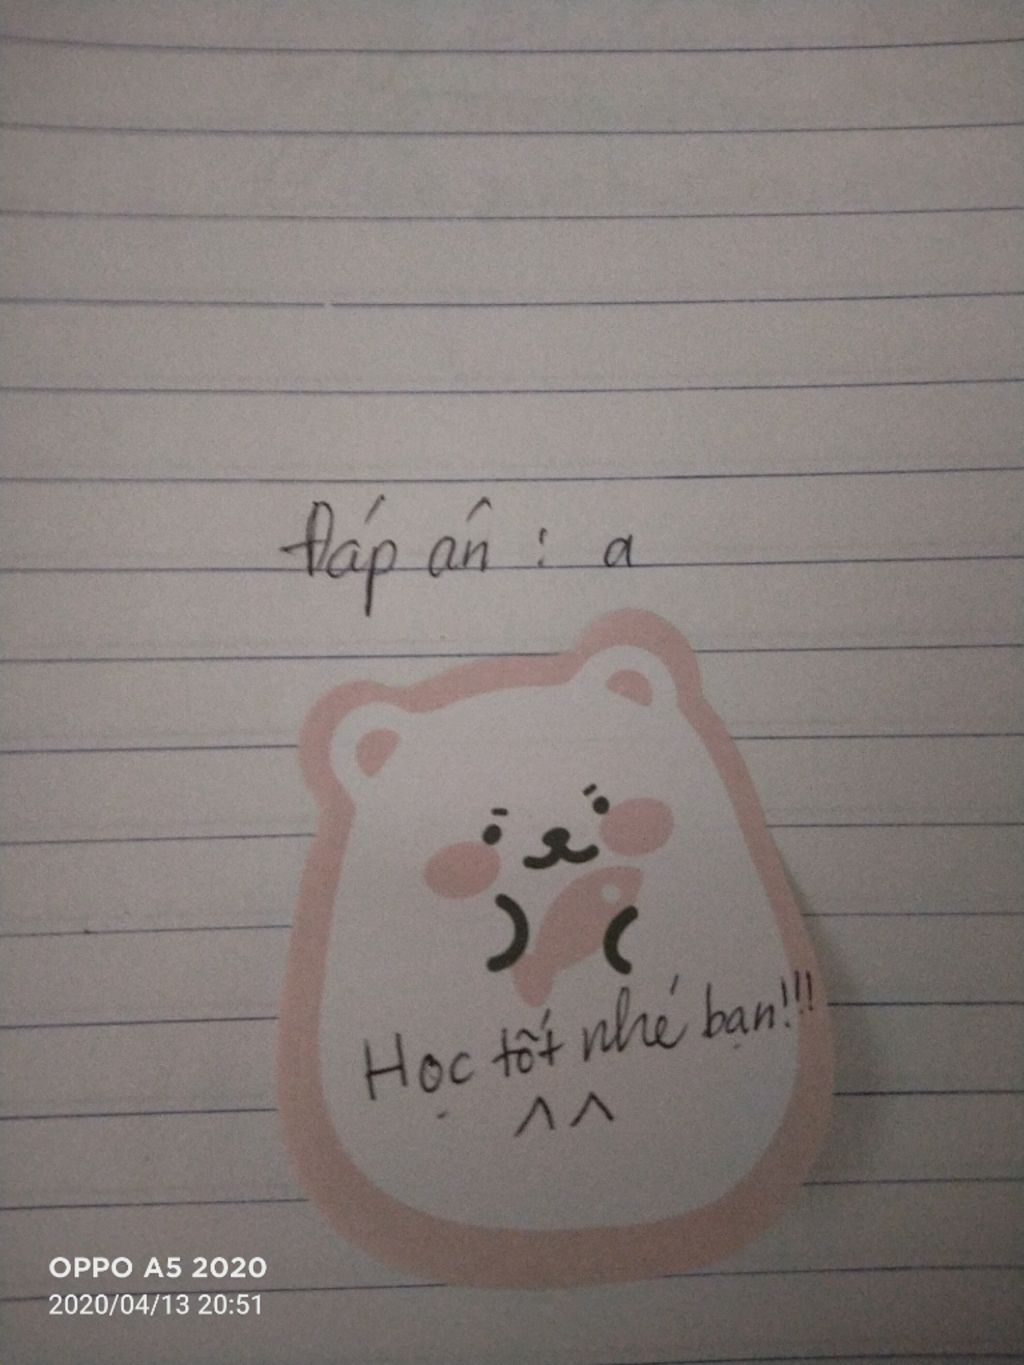 Đáp án : a
Học tốt nhé bạn!!!
^^
OPPO A5 2020
2020/04/13 20:51